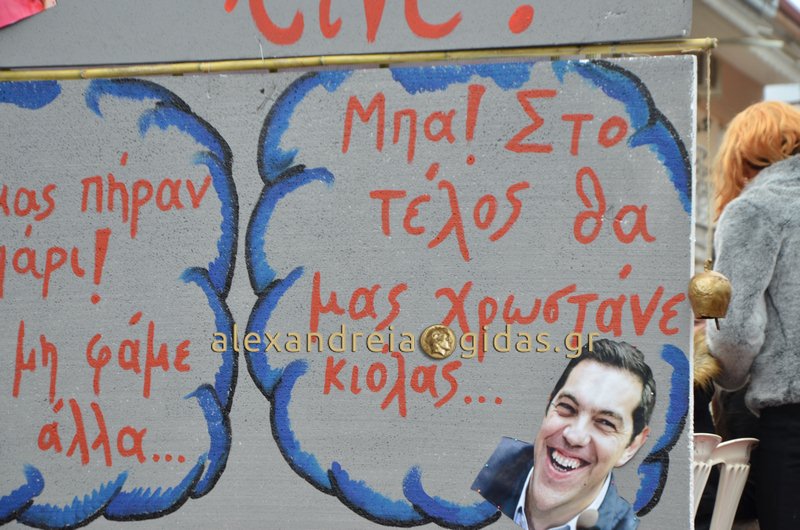 μας πήραν
μη φάμε
άλλα...
Μπα! Στο
τέλος θα
μας χρωστάνε
κιόλας...
alexandreia gidas.gr